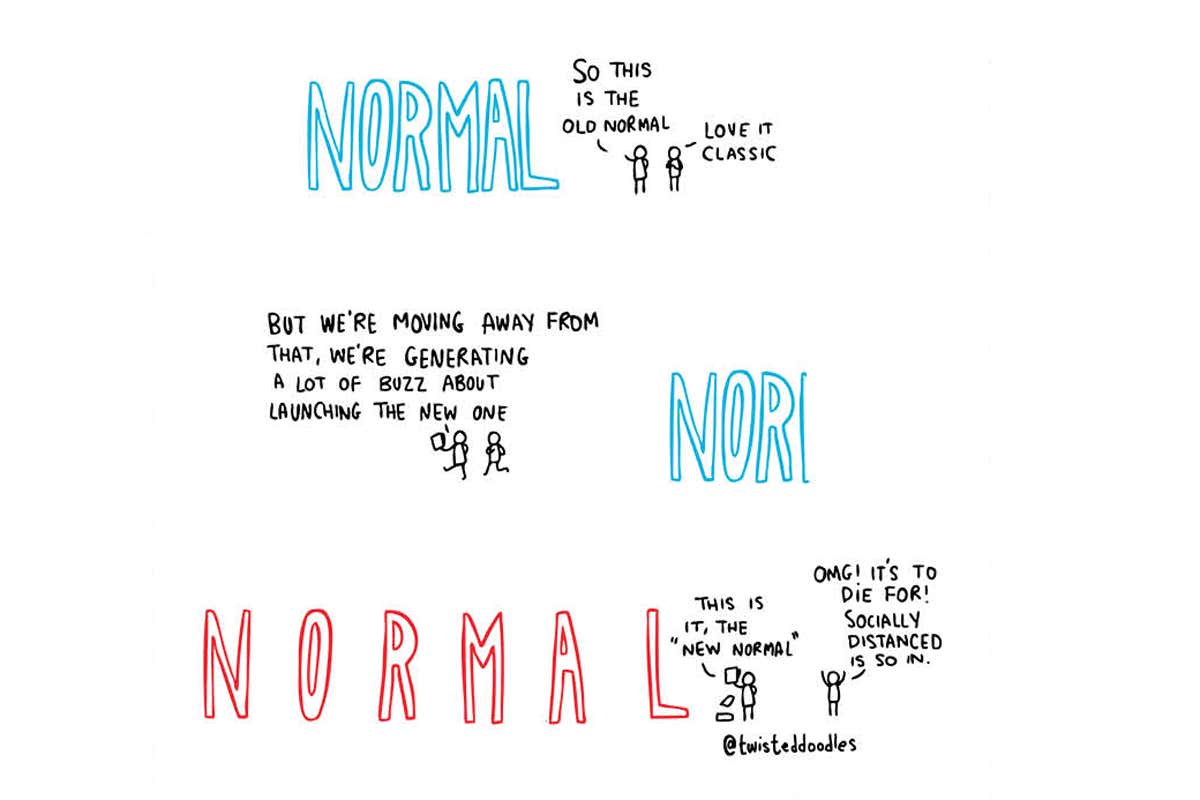 NORMAL
SO THIS
IS THE
OLD NORMAL
LOVE IT
CLASSIC
BUT WE'RE MOVING AWAY FROM
THAT, WE'RE GENERATING
A LOT OF BUZZ ABOUT
LAUNCHING THE NEW ONE
NOR
NORMAL
THIS IS
IT, THE
"NEW NORMAL"
OMG! IT'S TO
DIE FOR!
SOCIALLY
DISTANCED
IS SO IN.
@twisteddoodles